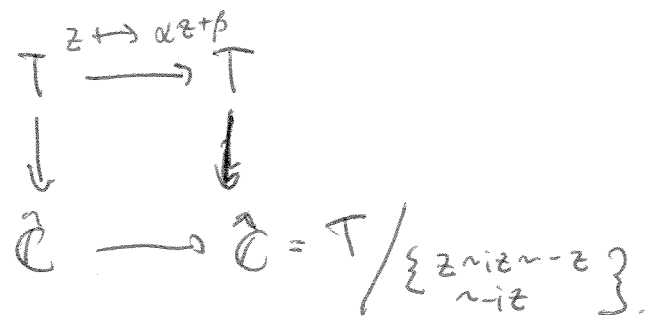 z ↦ αz+β
T ⟶ T
↓ ↓
Ĉ ⟶ Ĉ = T / { z ~ iz ~ -z
~ -iz }.